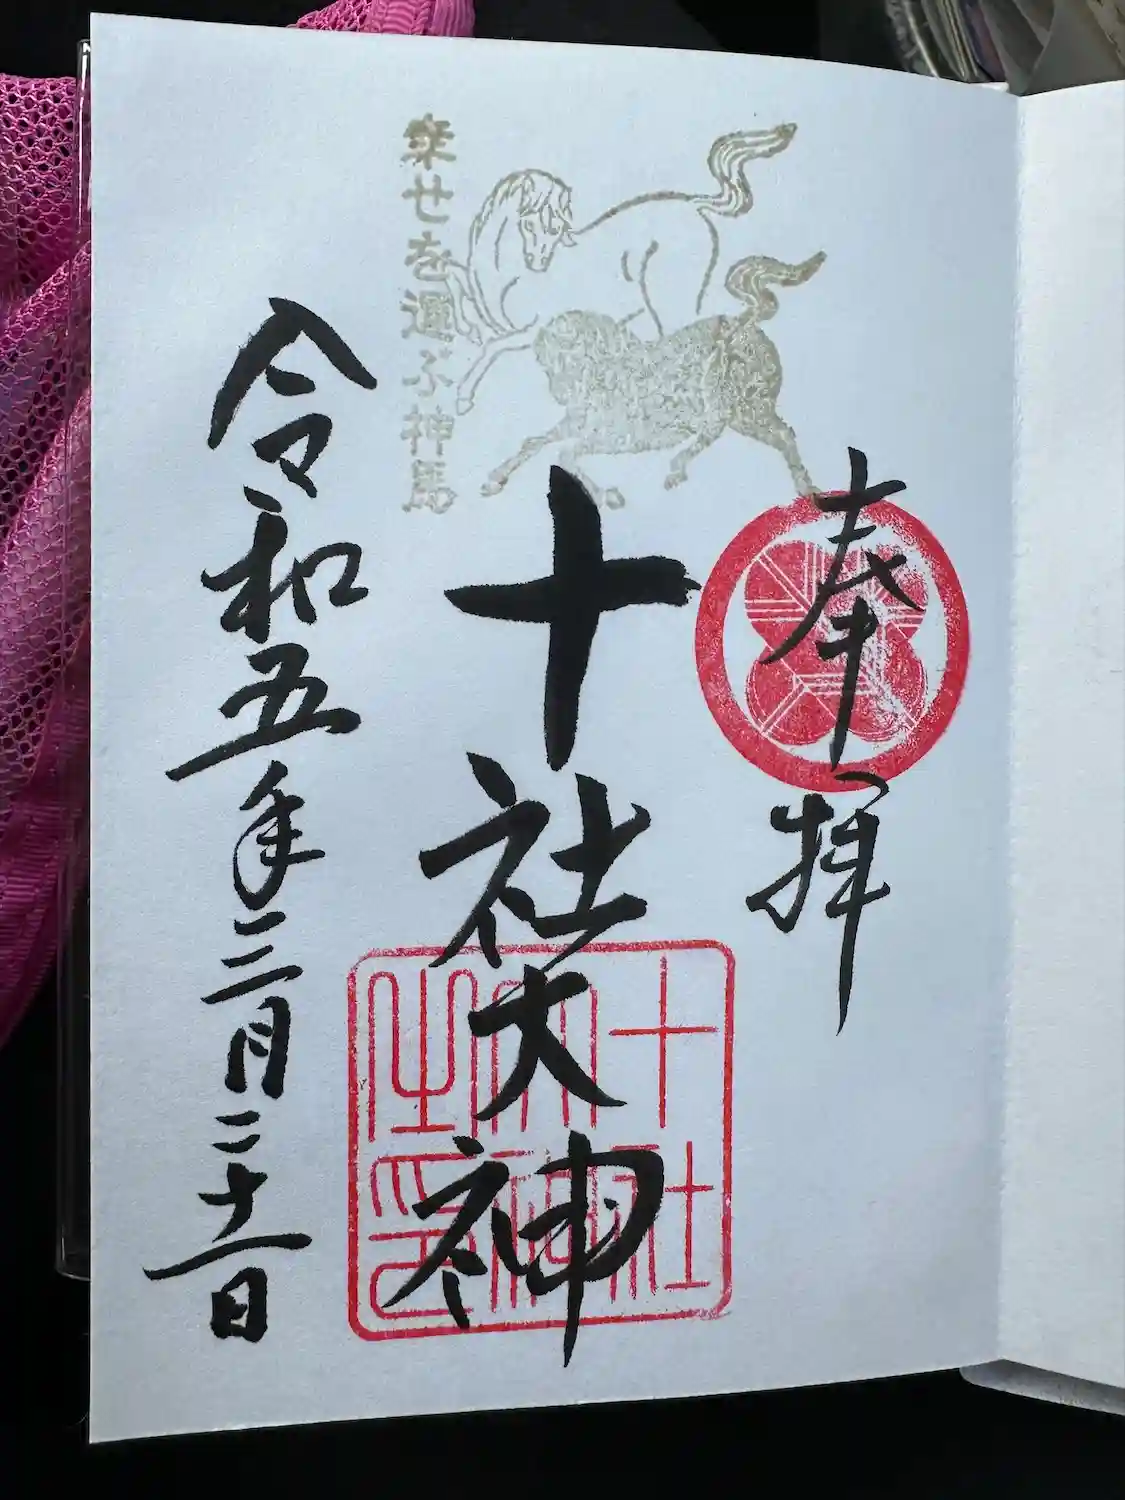 奉拝
十社大神
令和五年三月二十一日
幸せを運ぶ神馬
十社
大神
之印